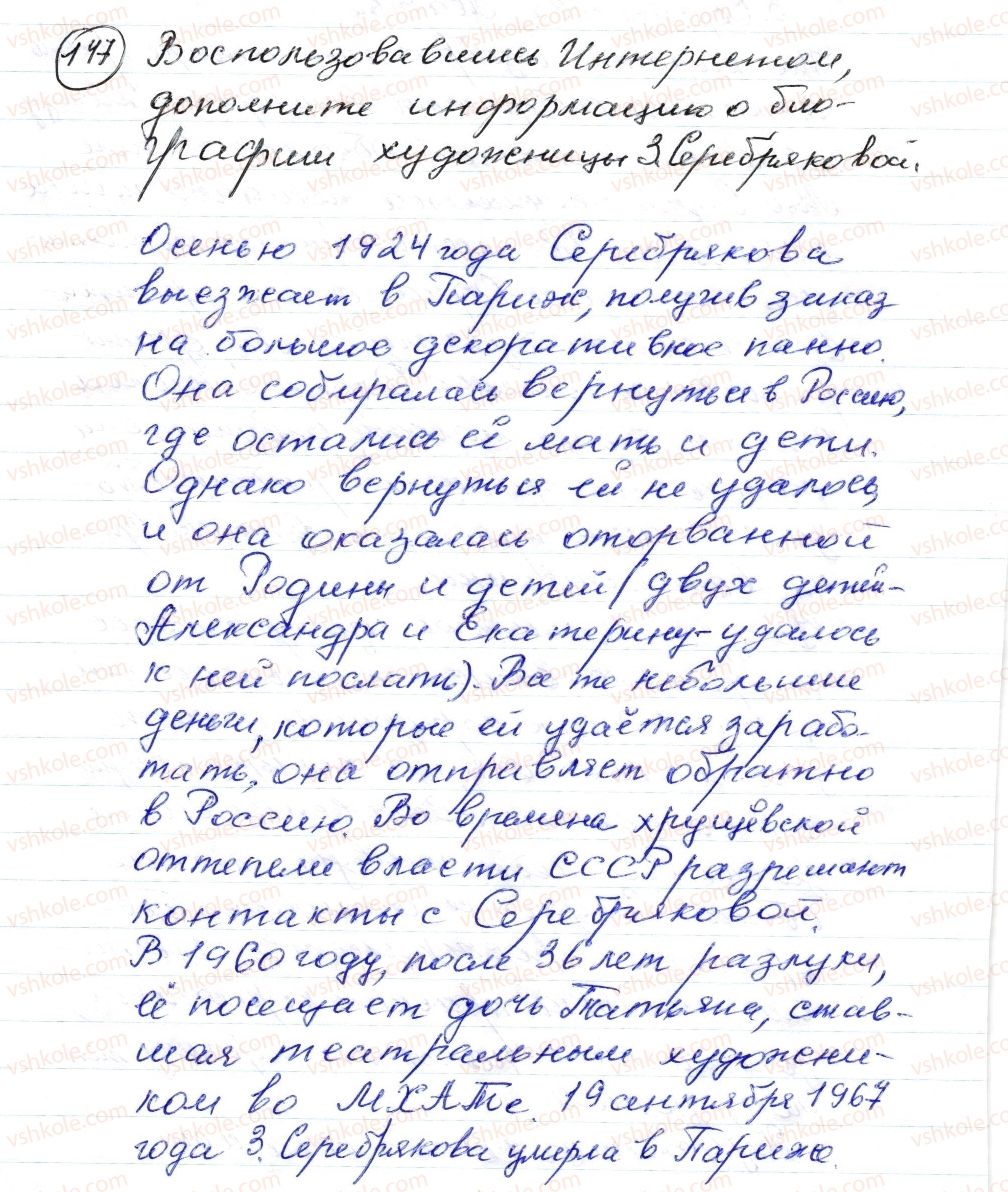 147 Воспользовавшись Интернетом,
дополните информацию о био-
графии художницы З. Серебряковой.
Осенью 1924 года Серебрякова
выезжает в Париж, получив заказ
на большое декоративное панно.
Она собиралась вернуться в Россию,
где остались её мать и дети.
Однако вернуться ей не удалось,
и она оказалась оторванной
от Родины и детей (двух детей-
Александра и Екатерину-удалось
к ней послать). Все те небольшие
деньги, которые ей удаётся зарабо-
тать, она отправляет обратно
в Россию. Во времена хрущёвской
оттепели власти СССР разрешают
контакты с Серебряковой.
В 1960 году, после 36 лет разлуки,
её посещает дочь Татьяна, став-
шая театральным художни-
ком во МХАТе. 19 сентября 1967
года З. Серебрякова умерла в Париже.
vshkole.com